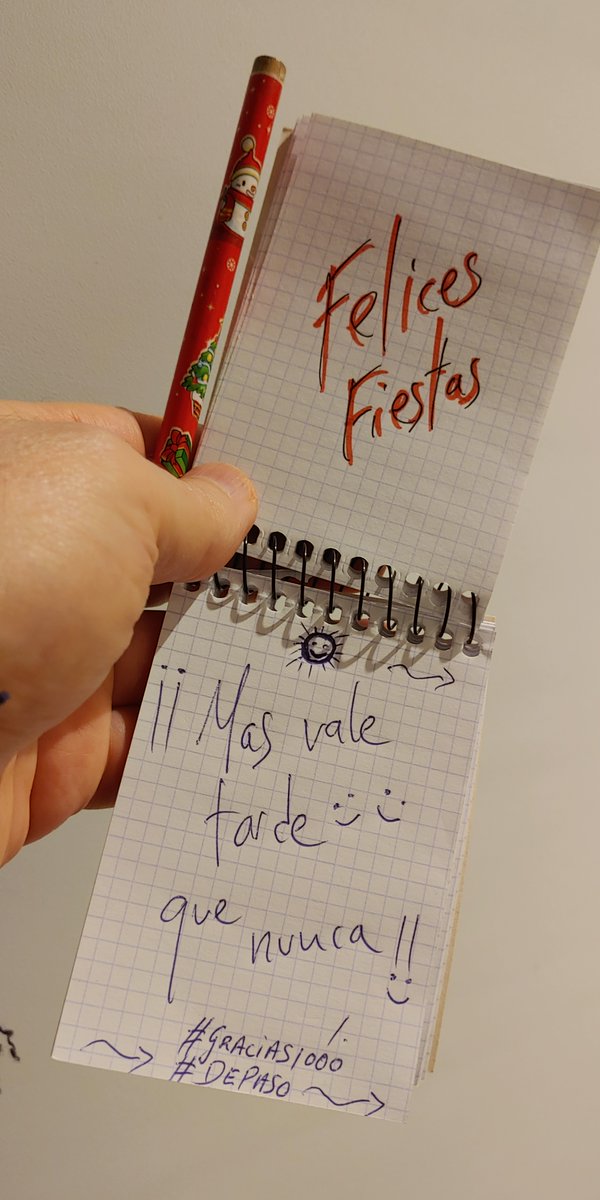 Felices
Fiestas
¡¡Mas vale
tarde
que nunca!!
#GRACIAS1000%
#DEPASO